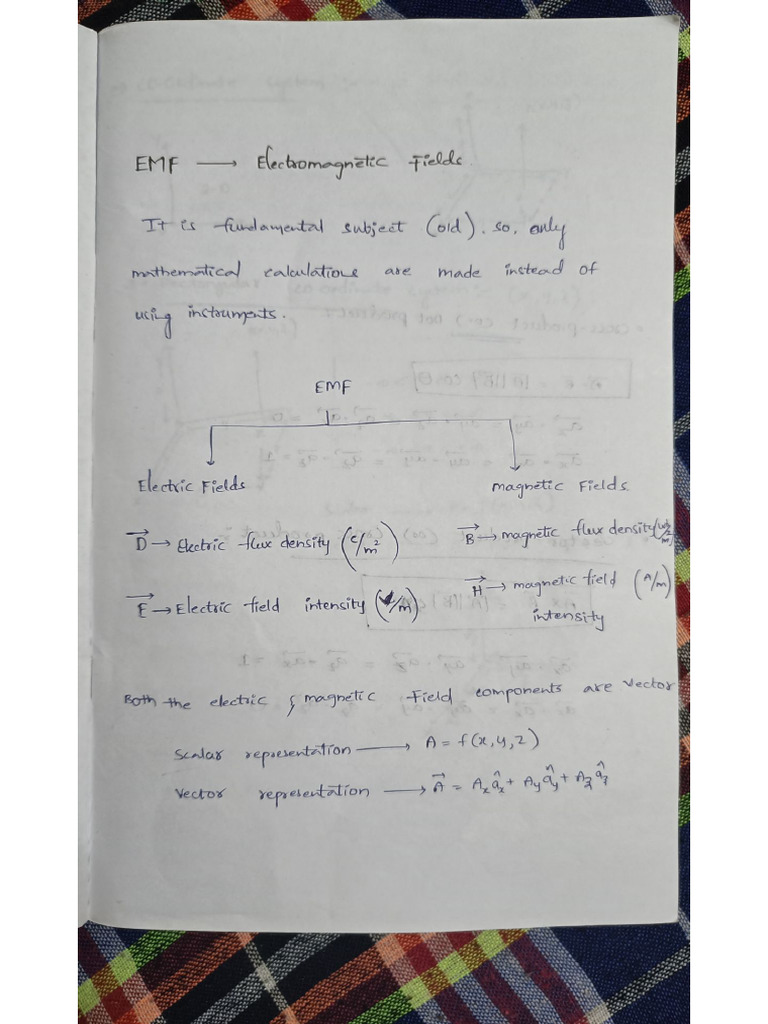 EMF → Electromagnetic Fields.
It is fundamental subject (old). so, only
mathematical calculations are made instead of
using instruments.
EMF
Electric Fields
magnetic Fields.
D⃗ → Electric flux density (C/m²)
B⃗ → magnetic flux density (wb/m²)
E⃗ → Electric field intensity (V/m)
H⃗ → magnetic field (A/m)
intensity
Both the electric & magnetic Field components are vector
scalar representation → A = f(x, y, z)
vector representation → A⃗ = Aₓ âₓ + Ay ây + Az âz